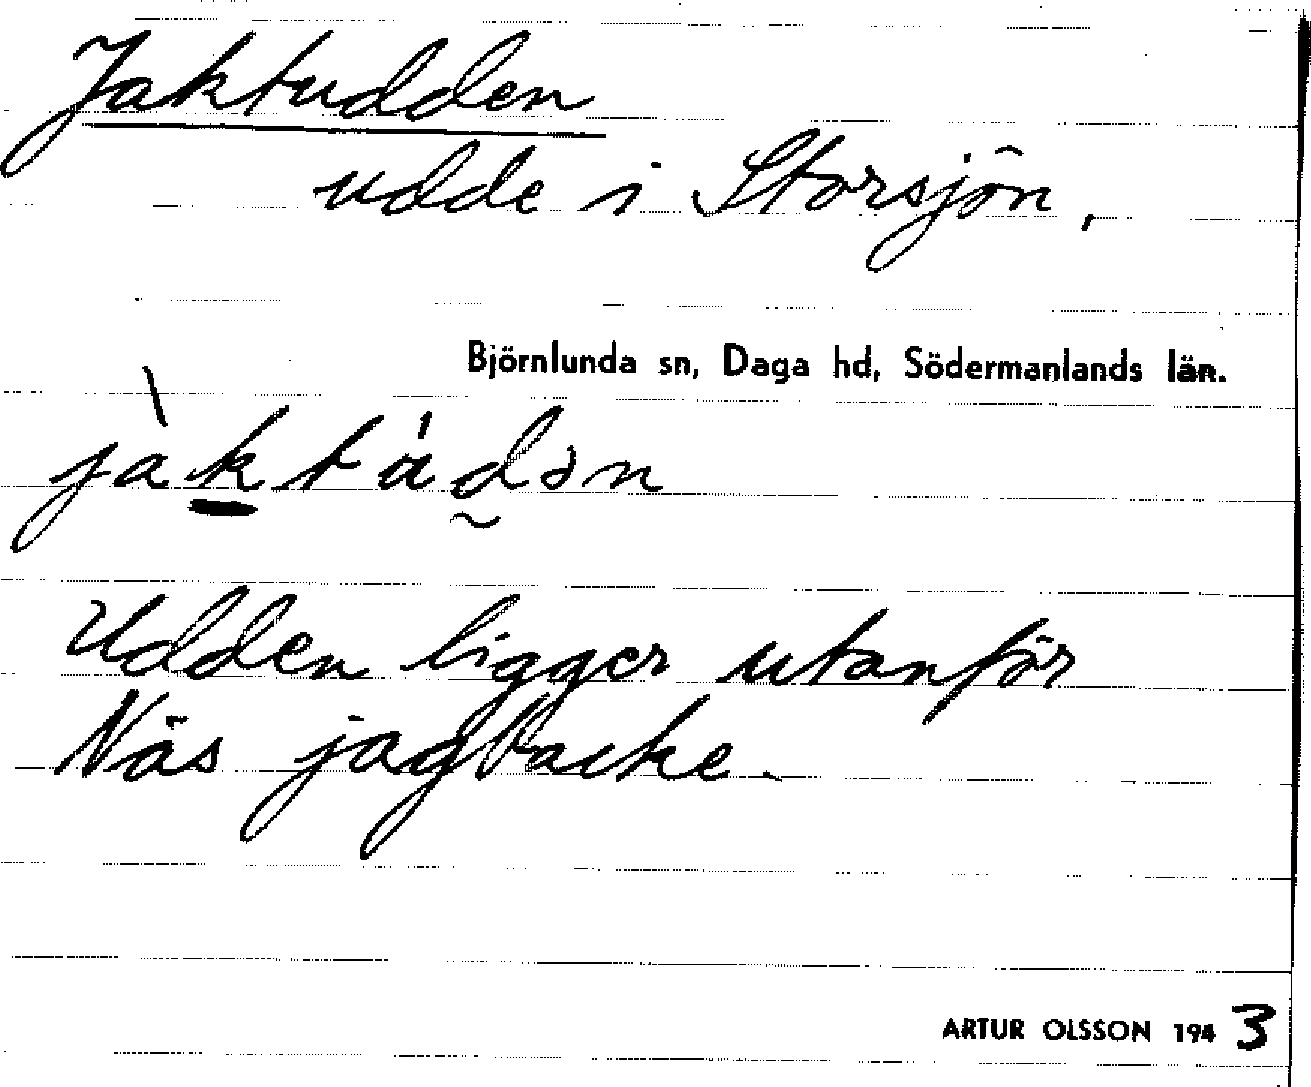 Jaktudden
udde i Storsjön,
Björnlunda sn, Daga hd, Södermanlands län.
jàktádən
Udden ligger utanför
Näs jagbacke.
ARTUR OLSSON 1943